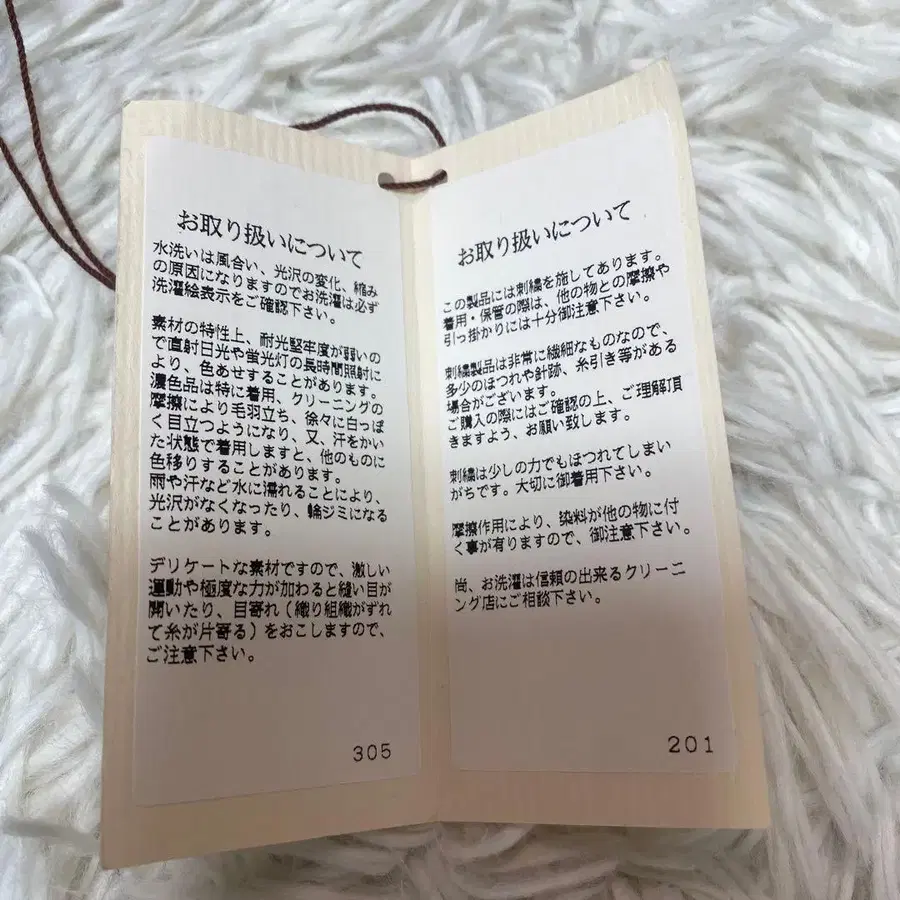 お取り扱いについて
水洗いは風合い、光沢の変化、縮み
の原因になりますのでお洗濯は必ず
洗濯絵表示をご確認下さい。
素材の特性上、耐光堅牢度が弱いの
で直射日光や蛍光灯の長時間照射に
より、色あせすることがあります。
濃色品は特に着用、クリーニングの
摩擦により毛羽立ち、徐々に白っぽ
く目立つようになり、又、汗をかい
た状態で着用しますと、他のものに
色移りすることがあります。
雨や汗など水に濡れることにより、
光沢がなくなったり、輪ジミになる
ことがあります。
デリケートな素材ですので、激しい
運動や極度な力が加わると縫い目が
開いたり、目寄れ(織り組織がずれ
て糸が片寄る)をおこしますので、
ご注意下さい。
305
お取り扱いについて
この製品には刺繍を施してあります。
着用・保管の際は、他の物との摩擦や
引っ掛かりには十分御注意下さい。
刺繍製品は非常に繊細なものなので、
多少のほつれや針跡、糸引き等がある
場合がございます。
ご購入の際にはご確認の上、ご理解頂
きますよう、お願い致します。
刺繍は少しの力でもほつれてしまい
がちです。大切に御着用下さい。
摩擦作用により、染料が他の物に付
く事が有りますので、御注意下さい。
尚、お洗濯は信頼の出来るクリーニ
ング店にご相談下さい。
201